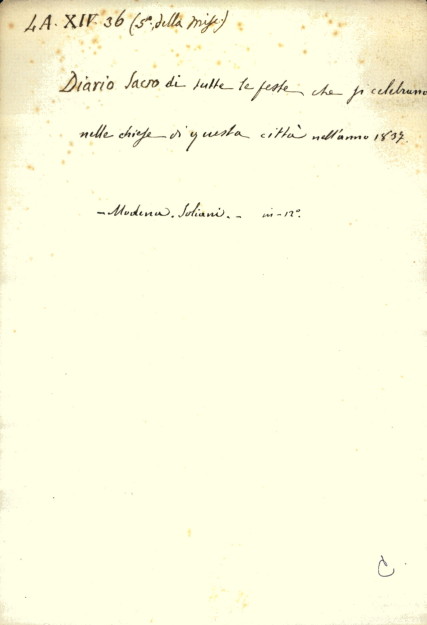 LA. XIV. 36 (5ª. della Misc.)
Diario Sacro di tutte le feste, che si celebrano
nelle chiese di questa città nell'anno 1837.
- Modena. Soliani. - in-12º.
C